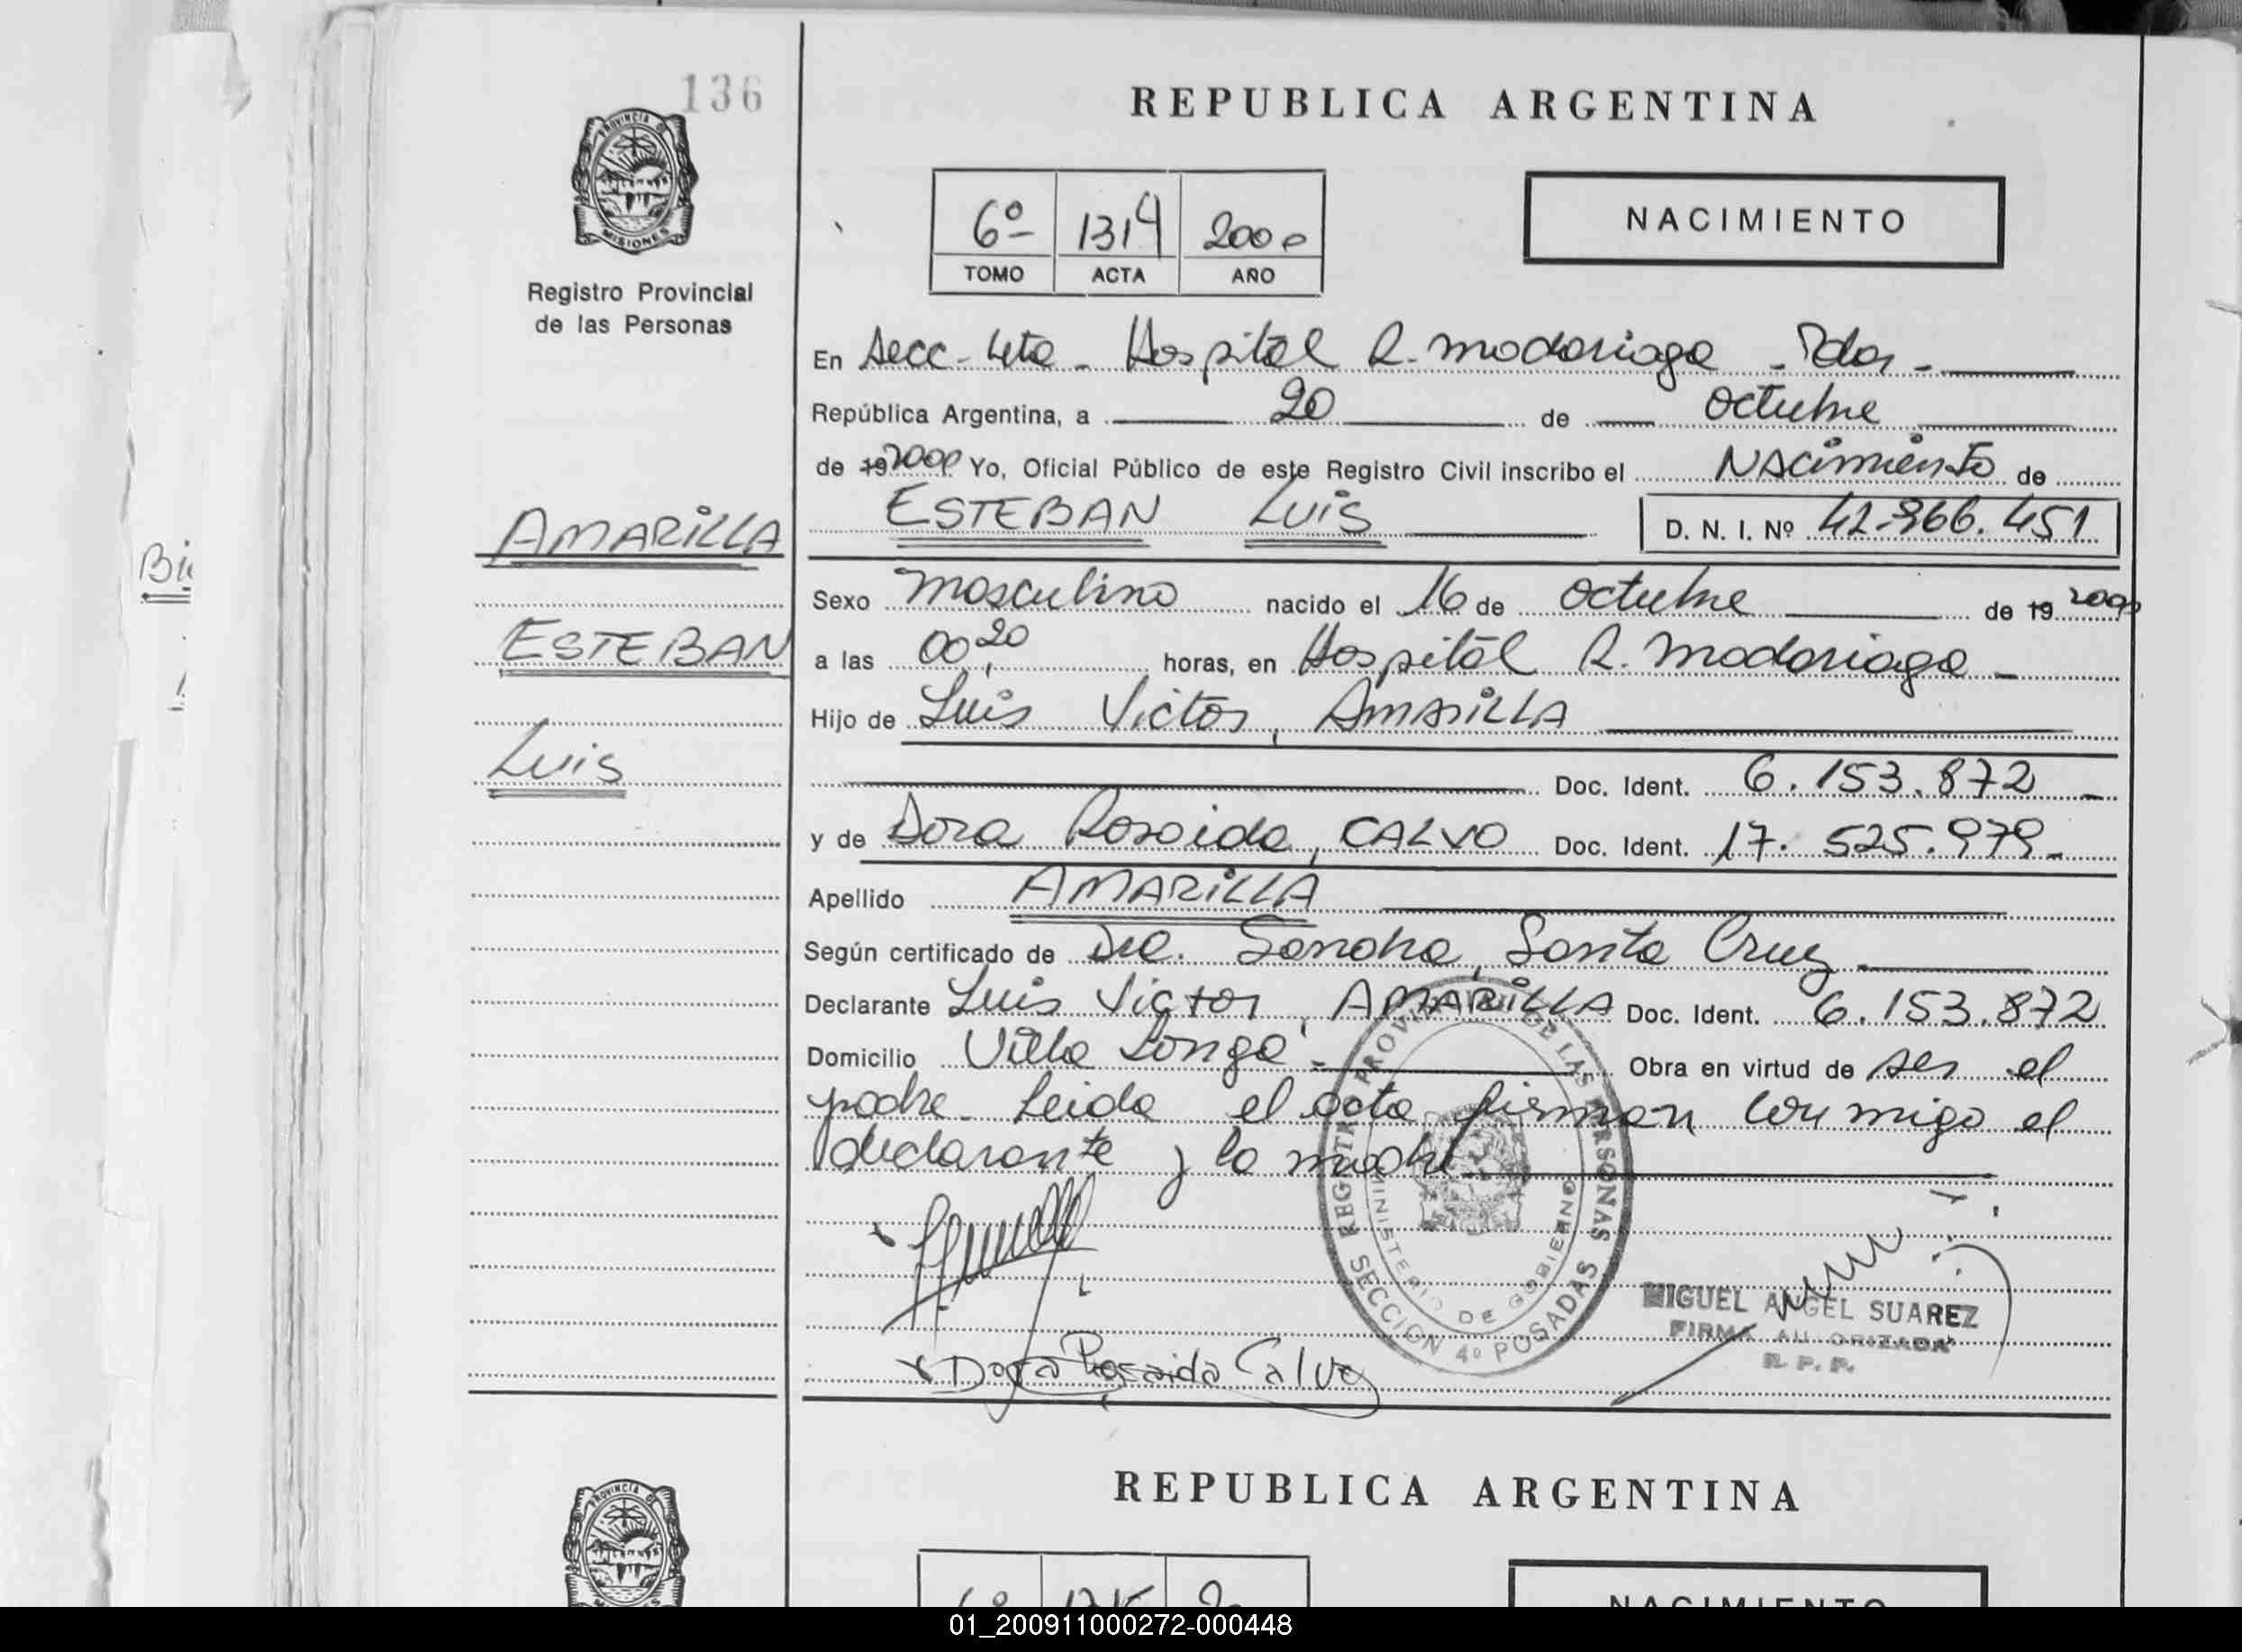 136
PROVINCIA DE
MISIONES
Registro Provincial
de las Personas
REPUBLICA ARGENTINA
6º 1314 2000
TOMO ACTA AÑO
NACIMIENTO
En Secc. 4ta - Hospital R. Madariaga - Pdas -
República Argentina, a 20 de Octubre
de 19 2000 Yo, Oficial Público de este Registro Civil inscribo el Nacimiento de
ESTEBAN LUIS D. N. I. Nº 42.966.451
AMARILLA
ESTEBAN
Luis
Bi
Sexo Masculino nacido el 16 de Octubre de 19 2000
a las 00,20 horas, en Hospital R. Madariaga -
Hijo de Luis Victor, AMARILLA
Doc. Ident. 6.153.872 -
y de Dora Rosaida, CALVO Doc. Ident. 17.525.979 -
Apellido AMARILLA
Según certificado de Dra. Sandra, Santa Cruz
Declarante Luis Victor, AMARILLA Doc. Ident. 6.153.872
Domicilio Villa Longa - Obra en virtud de ser el
padre - Leida el acta firman conmigo el
declarante y la madre
REGISTRO PROVINCIAL DE LAS PERSONAS
MINISTERIO DE GOBIERNO
SECCION 4º POSADAS
MIGUEL ANGEL SUAREZ
FIRMA AUTORIZADA
R. P. P.
x Dora Rosaida Calvo
PROVINCIA DE
MISIONES
REPUBLICA ARGENTINA
6º 1315
NACIMIENTO
01_200911000272-000448